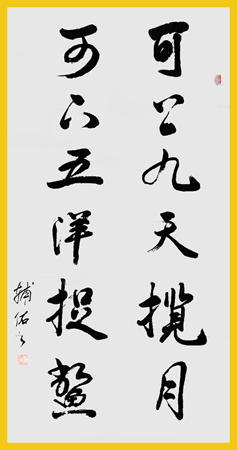 可上九天揽月
可下五洋捉鳖
辅佑